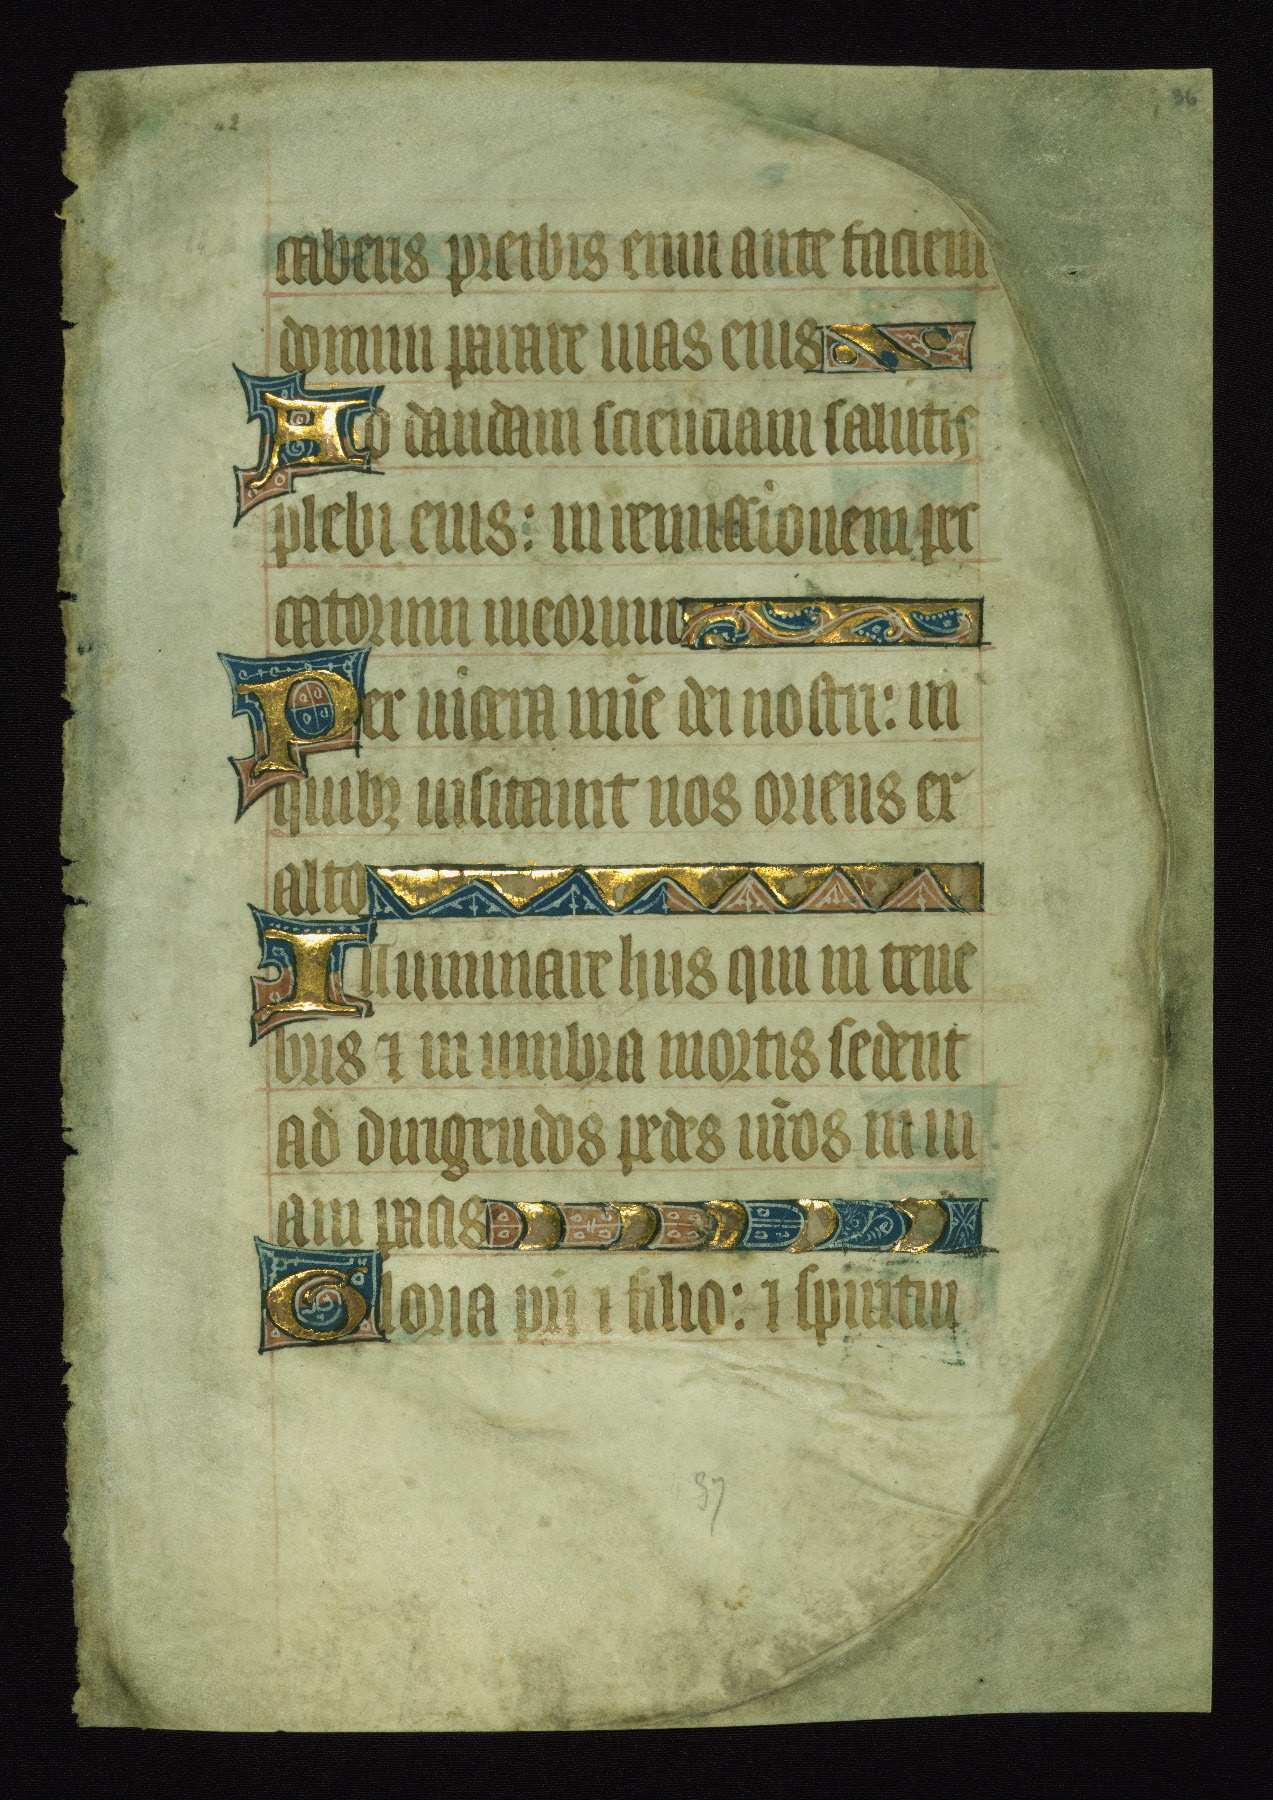 42
96
caberis preibis enim ante faciem
domini parare uias eius
Ad dandam scienciam salutis
plebi eius: in remissionem pec
catorum meorum
Per uicera mīe dei nostri: in
quibꝫ uisitauit nos oriens ex
alto
Illuminare hijs qui in tene
bris ⁊ in umbra mortis sedent
ad dirigendos pedes nr̄os in ui
am pacis
Gloria pri ⁊ filio: ⁊ spiritui
97